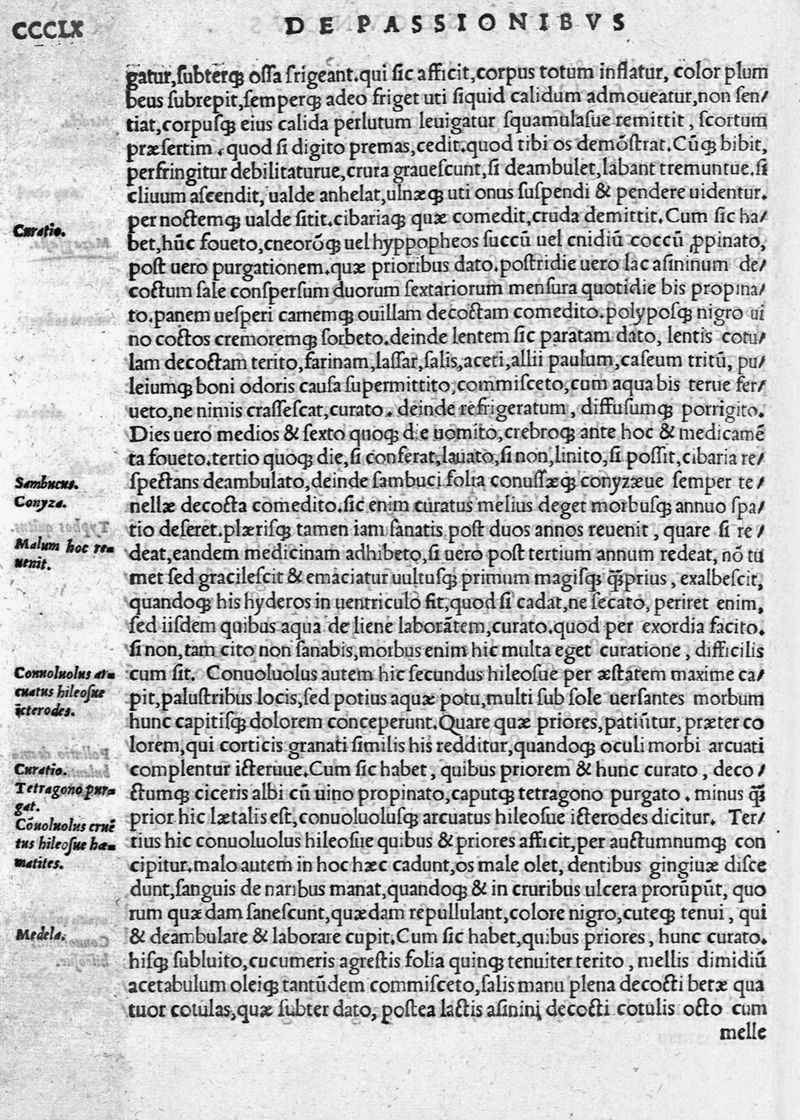 CCCLX
DE PASSIONIBVS
gatur,ſubterq́ꝫ oſſa frigeant.qui ſic afficit,corpus totum inflatur, color plum
beus ſubrepit,ſemperqꝫ adeo friget uti ſiquid calidum admoueatur,non ſen/
tiat,corpuſqꝫ eius calida perlutum leuigatur ſquamulaſue remittit, ſcortum
præſertim.quod ſi digito premas,cedit.quod tibi os demōſtrat.Cūqꝫ bibit,
perfringitur debilitaturue,crura graueſcunt,ſi deambulet,labant tremuntue.ſi
cliuum aſcendit, ualde anhelat,ulnæqꝫ uti onus ſuſpendi & pendere uidentur.
per noctemqꝫ ualde ſitit.cibariaqꝫ quæ comedit,cruda demittit.Cum ſic ha/
Curatio.
bet,hūc foueto,cneorōqꝫ uel hyppopheos ſuccū uel cnidiū coccū ꝓpinato,
poſt uero purgationem.quæ prioribus dato.poſtridie uero lac aſininum de/
coctum ſale conſperſum duorum ſextariorum menſura quotidie bis propina/
to.panem ueſperi carnemqꝫ ouillam decoctam comedito.polypoſqꝫ nigro ui
no coctos cremoremqꝫ ſorbeto.deinde lentem ſic paratam dato, lentis cotu/
lam decoctam terito,farinam,laſſar,ſalis,aceti,allii paulum,caſeum tritū, pu/
leiumqꝫ boni odoris cauſa ſupermittito,commiſceto,cum aqua bis terue fer/
ueto,ne nimis craſſeſcat,curato. deinde refrigeratum, diffuſumqꝫ porrigito.
Dies uero medios & ſexto quoqꝫ die uomito,crebroqꝫ ante hoc & medicamē
ta foueto.tertio quoqꝫ die,ſi conferat,lauato,ſi non,linito,ſi poſſit,cibaria re/
Sambucus.
ſpectans deambulato,deinde ſambuci folia conuſſæqꝫ conyzæue ſemper te/
Conyza.
nellæ decocta comedito.ſic enim curatus melius deget morbuſqꝫ annuo ſpa/
tio deſeret.plæriſqꝫ tamen iam ſanatis poſt duos annos reuenit, quare ſi re/
Malum hoc re=
uenit.
deat,eandem medicinam adhibeto,ſi uero poſt tertium annum redeat, nō tu
met ſed gracileſcit & emaciatur uultuſqꝫ primum magiſqꝫ q̄ꝫprius, exalbeſcit,
quandoqꝫ his hyderos in uentriculo fit,quod ſi cadat,ne ſecato, periret enim,
ſed iiſdem quibus aqua de liene laborātem,curato.quod per exordia facito.
ſi non,tam cito non ſanabis,morbus enim hic multa eget curatione, difficilis
Conuoluolus ar=
cuatus hileoſue
īcterodes.
cum ſit. Conuoluolus autem hic ſecundus hileoſue per æſtatem maxime ca/
pit,paluſtribus locis,ſed potius aquæ potu,multi ſub ſole uerſantes morbum
hunc capitiſqꝫ dolorem conceperunt.Quare quæ priores,patiūtur, præter co
lorem,qui corticis granati ſimilis his redditur,quandoqꝫ oculi morbi arcuati
Curatio.
complentur icteruue.Cum ſic habet, quibus priorem & hunc curato, deco/
Tetragono pur=
gat.
ctumqꝫ ciceris albi cū uino propinato,caputqꝫ tetragono purgato. minus q̄ꝫ
Cōuoluolus cruē
tus hileoſue hæ=
matites.
prior hic lætalis eſt,conuoluoluſqꝫ arcuatus hileoſue icterodes dicitur. Ter/
tius hic conuoluolus hileoſue quibus & priores afficit,per auctumnumqꝫ con
cipitur.malo autem in hoc hæc cadunt,os male olet, dentibus gingiuæ diſce
dunt,ſanguis de naribus manat,quandoqꝫ & in cruribus ulcera prorūpūt, quo
rum quædam ſaneſcunt,quædam repullulant,colore nigro,cuteqꝫ tenui, qui
Medela.
& deambulare & laborare cupit.Cum ſic habet,quibus priores, hunc curato.
hiſqꝫ ſubluito,cucumeris agreſtis folia quinqꝫ tenuiter terito, mellis dimidiū
acetabulum oleiqꝫ tantūdem commiſceto,ſalis manu plena decocti betæ qua
tuor cotulas,quæ ſubter dato, poſtea lactis aſinini decocti cotulis octo cum
melle